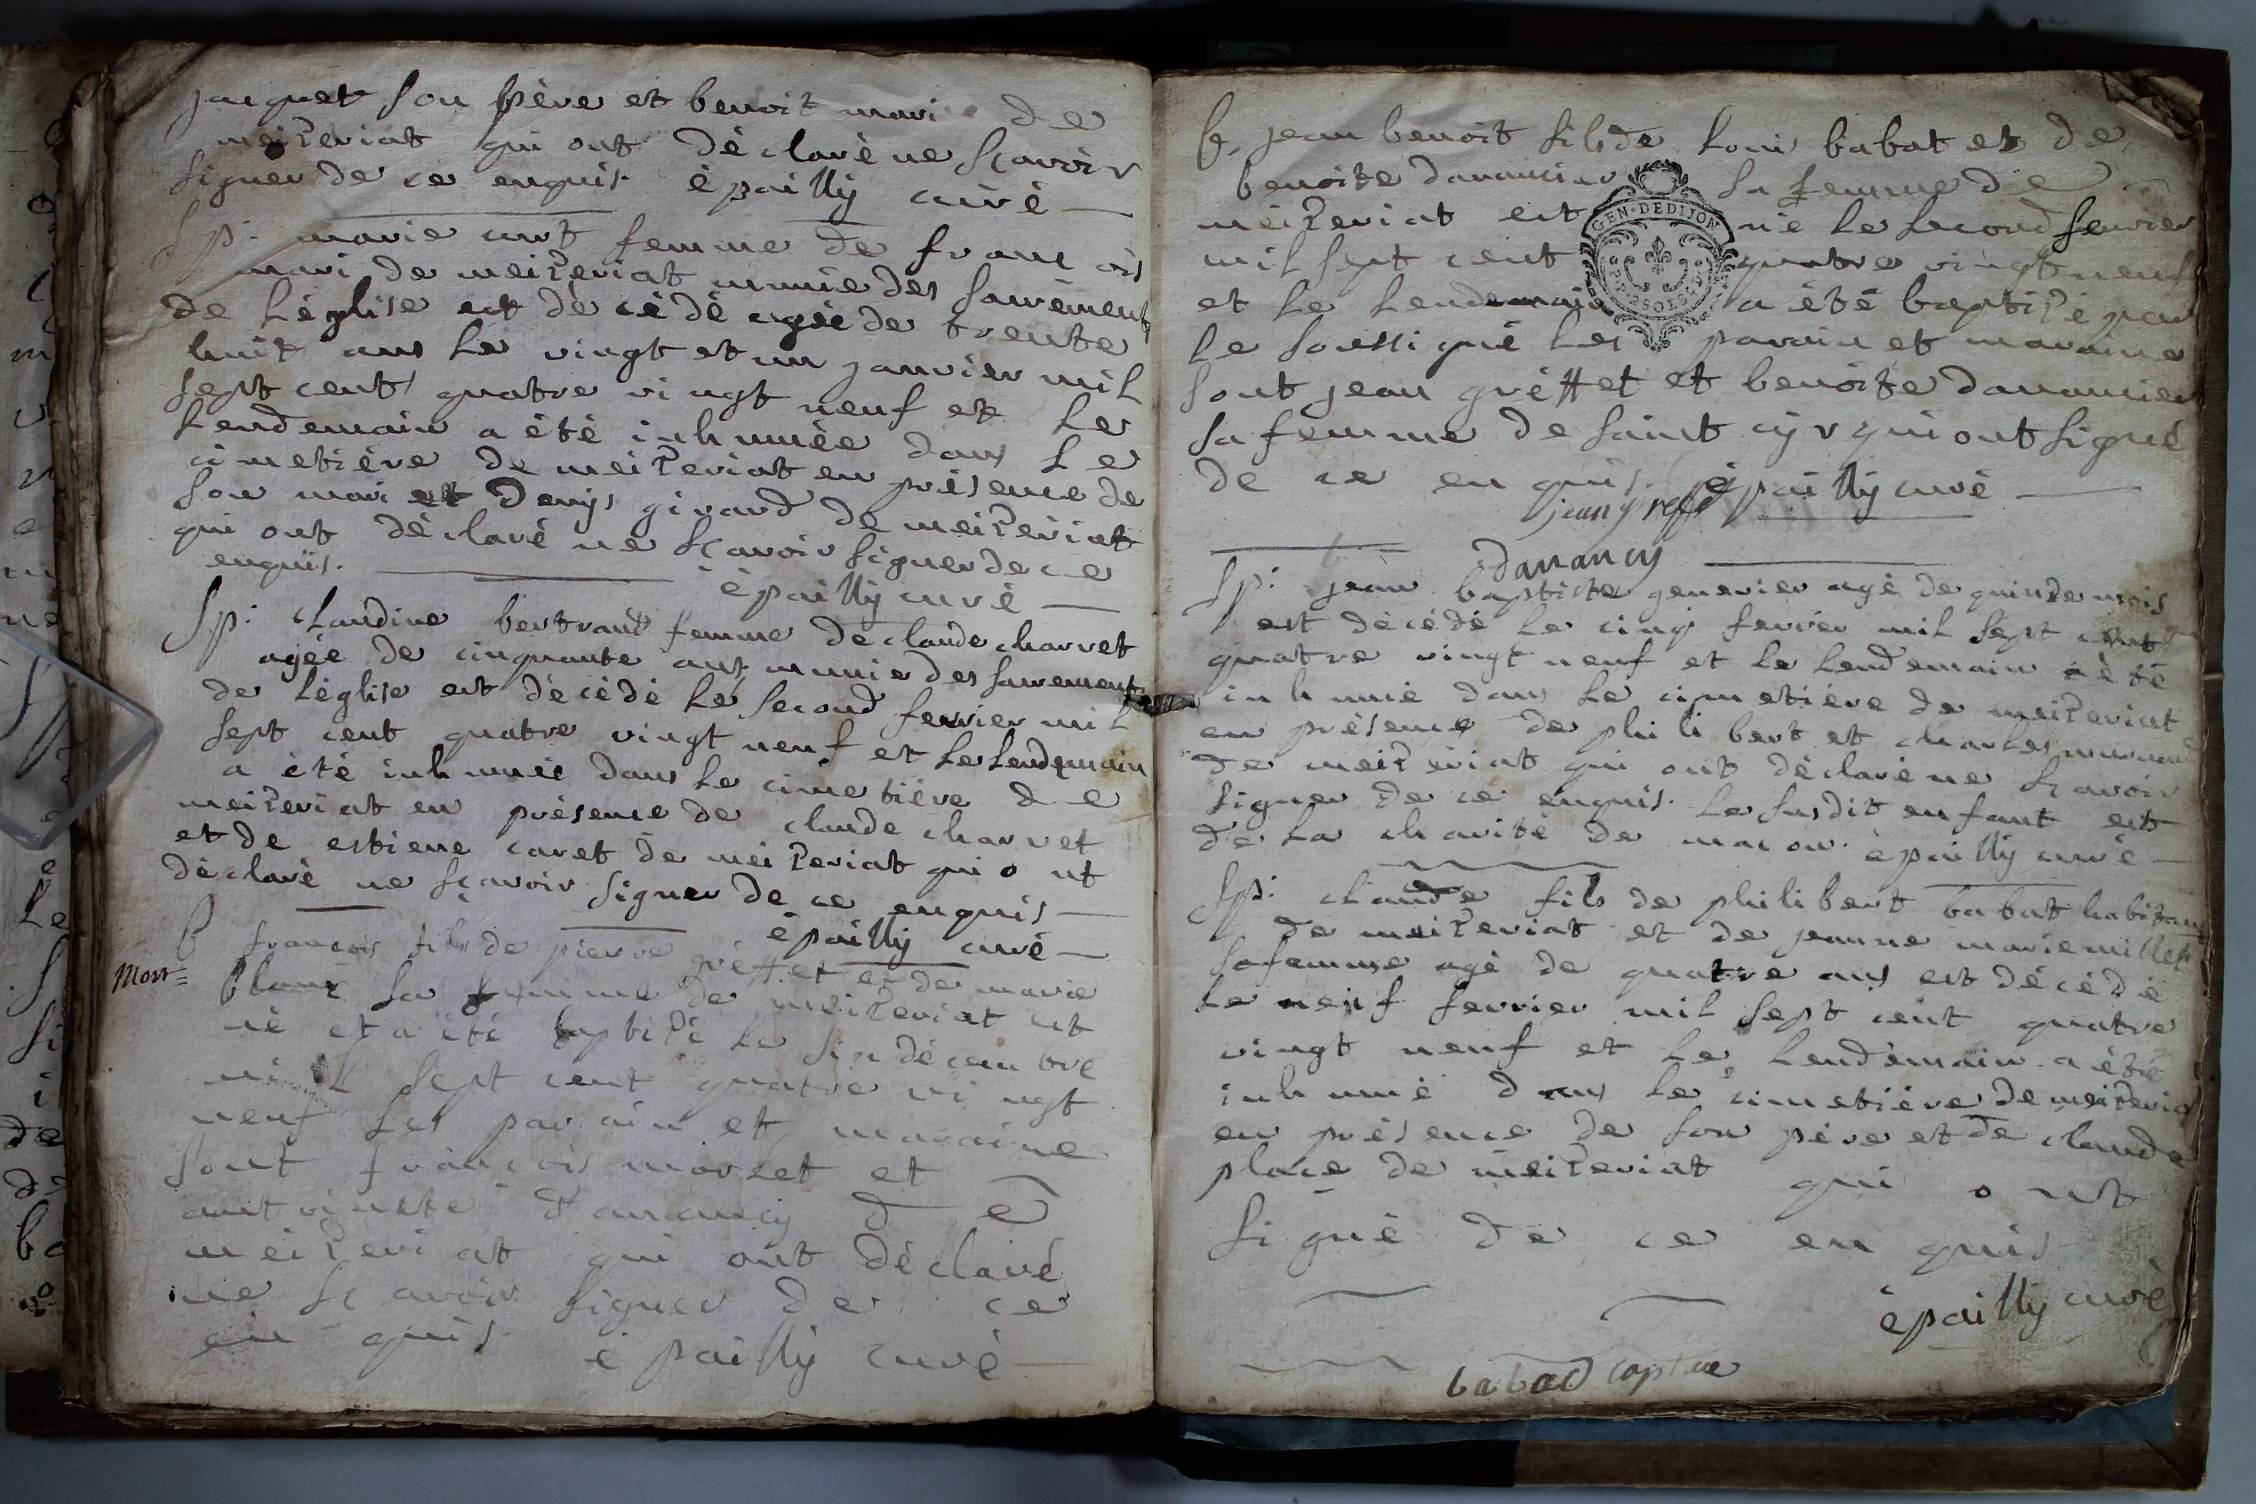 jacquet son père et benoit mari de
meizeriat qui ont dèclarè ne sçavoir
signer de ce enquis. èpailly curè
Sp: marie curt femme de francois
mari de meizeriat munie des sacrèments
de L'église est dècèdè agèe de trente
huit ans Le vingt et un janvier mil
sept cents quatre vingt neuf et Le
Lendemain a ètè inhumèe dans Le
cimetière de meizeriat en prèsence de
son mari et denys girard de meizeriat
qui ont dèclarè ne sçavoir signer de ce
enquis.
èpailly curè
Sp: claudine bertrand femme de claude charvet
agèe de cinquante ans munie des sacrements
de L'èglise est dècèdè Le second fevrier mil
sept cent quatre vingt neuf et Le Lendemain
a ètè inhumèe dans Le cimetière de
meizeriat en prèsence de claude charvet
et de estiene caret de meizeriat qui ont
dèclarè ne sçavoir signer de ce enquis
èpailly curè
b francois fils de pierre grèffet et de marie
Mort = blanc sa femme de meizeriat est
nè et a ètè baptizè Le six dècembre
mil sept cent quatre vingt
neuf Les parain et maraine
sont francois morlet et
d'anancy de
meizeriat qui ont dèclarè
ne sçavoir signer de ce
enquis. èpailly curè
b. jean benoit fils de Loui babat et de
benoite danancier sa femme de
meizeriat est nè Le second fevrier
mil sept cent quatre vingt neuf
et Le Lendemain a ètè baptizè par
Le soussignè Les parain et maraine
sont jean grèffet et benoite danancier
sa femme de saint cyr qui ont signè
de ce enquis. èpailly curè
jean greffet
dananciy
GEN·DEDIJON
Sp: jean baptiste generier agè de quinze mois
est dècèdè Le cinq fevrier mil sept cent
quatre vingt neuf et Le Lendemain a ètè
inhumè dans Le cimetière de meizeriat
en prèsence de philibert et charles
de meizeriat qui ont dèclarè ne sçavoir
signer de ce enquis. Le susdit enfant est
de La charitè de macon. èpailly curè
Sp: claude fils de philibert babat habitant
de meizeriat et de jeanne marie millet
sa femme agè de quatre ans est dècèdè
Le neuf fevrier mil sept cent quatre
vingt neuf et Le Lendemain a ètè
inhumè dans Le cimetière de meizeria
en prèsence de son père et de claude
place de meizeriat qui ont
signè de ce enquis
èpailly curè
babad